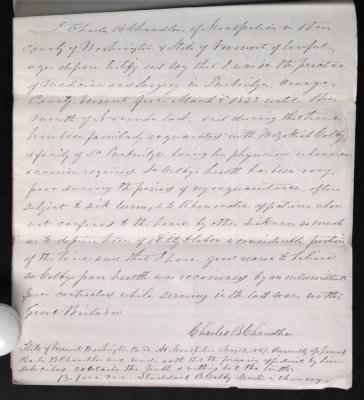 I Charles B Chandler of Montpelier in the
County of Washington & State of Vermont of lawful
age depose testify and say that I was in the practice
of Medicine and Surgery in Tunbridge Orange
County Vermont from March 1823 until the
month of last, and during the time
have been familiarly acquainted with Hezekiah Colby
& family of sd Tunbridge being his physician whenever
occasion required Sd Colbys health has been very
poor during the period of my acquaintance, often
subject to sick turns, & to Rheumatic affections when
not confined to the house by other sickness so much
as to deprive him of ability to labor a considerable portion
of the time and that I have good reason to believe
sd Colbys poor health was occasioned by an intermittent
fever contracted while serving in the last war with
Great Britain
Charles B Chandler
State of Vermont Washington Co ss At Montpelier Personally appeared
Charles B Chandler and made oath that the foregoing affidavit by him
subscribed contains the truth & nothing but the truth
Before me. Stoddard B Colby Master in Chancery